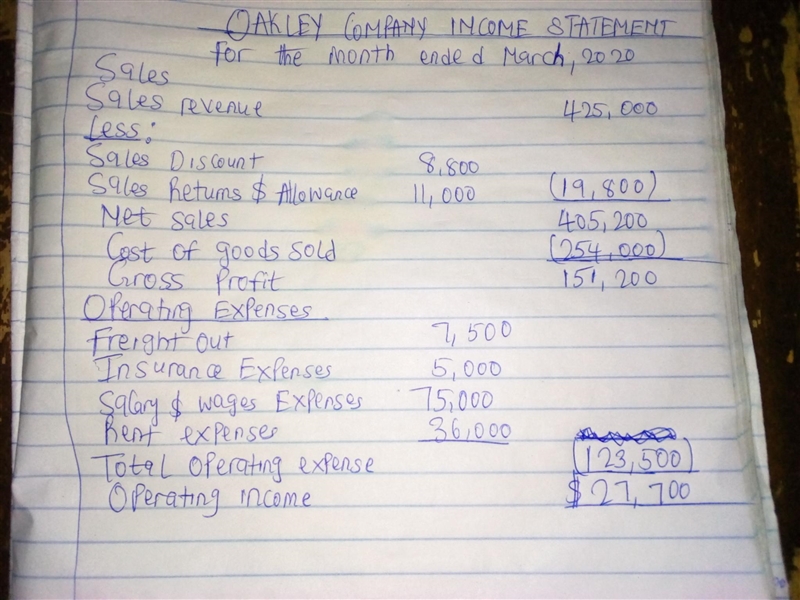 OAKLEY COMPANY INCOME STATEMENT
For the month ended March, 2020
Sales
Sales revenue 425,000
Less:
Sales Discount 8,800
Sales Returns $ Allowance 11,000 (19,800)
Net sales 405,200
Cost of goods sold (254,000)
Gross Profit 151,200
Operating Expenses
Freight out 7,500
Insurance Expenses 5,000
Salary $ wages Expenses 75,000
Rent expenses 36,000
Total operating expense (123,500)
Operating income $27,700